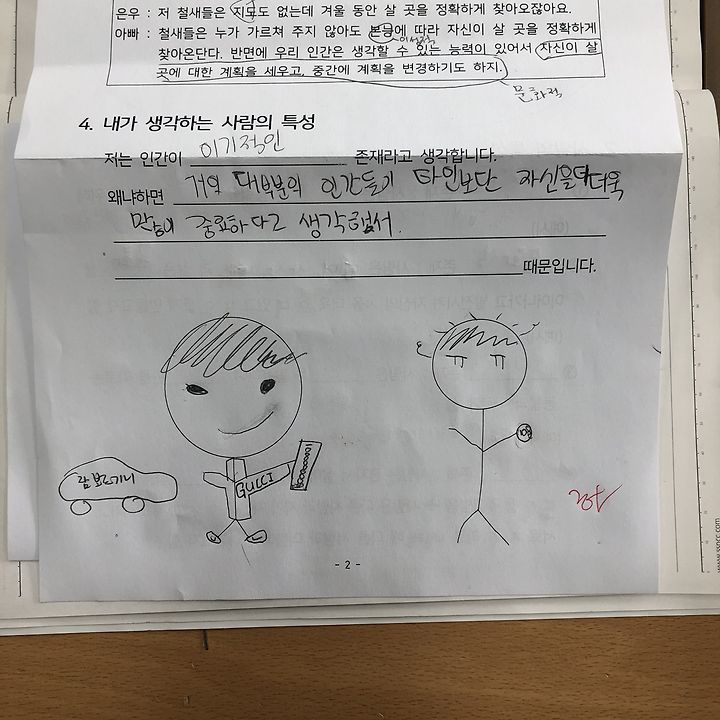 은우 : 저 철새들은 지도도 없는데 겨울 동안 살 곳을 정확하게 찾아오잖아요.
아빠 : 철새들은 누가 가르쳐 주지 않아도 본능에 따라 자신이 살 곳을 정확하게
이성적
찾아온단다. 반면에 우리 인간은 생각할 수 있는 능력이 있어서 자신이 살
곳에 대한 계획을 세우고, 중간에 계획을 변경하기도 하지.
문화적
4. 내가 생각하는 사람의 특성
저는 인간이 이기적인 존재라고 생각합니다.
왜냐하면 거의 대부분의 인간들이 타인보단 자신을 더욱
중요하다고 생각해서
때문입니다.
람보르기니
GUCCI
- 2 -
www.sspcc.com